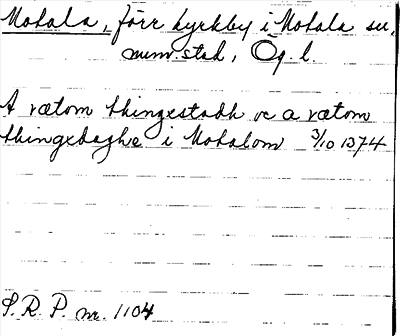 Motala, förr kyrkby i Motala sn,
num. stad, Ög. l.
A rætom thingestadh oc a rætom
thingedaghe i Motalom 3/10 1374
S. R. P. nr. 1104